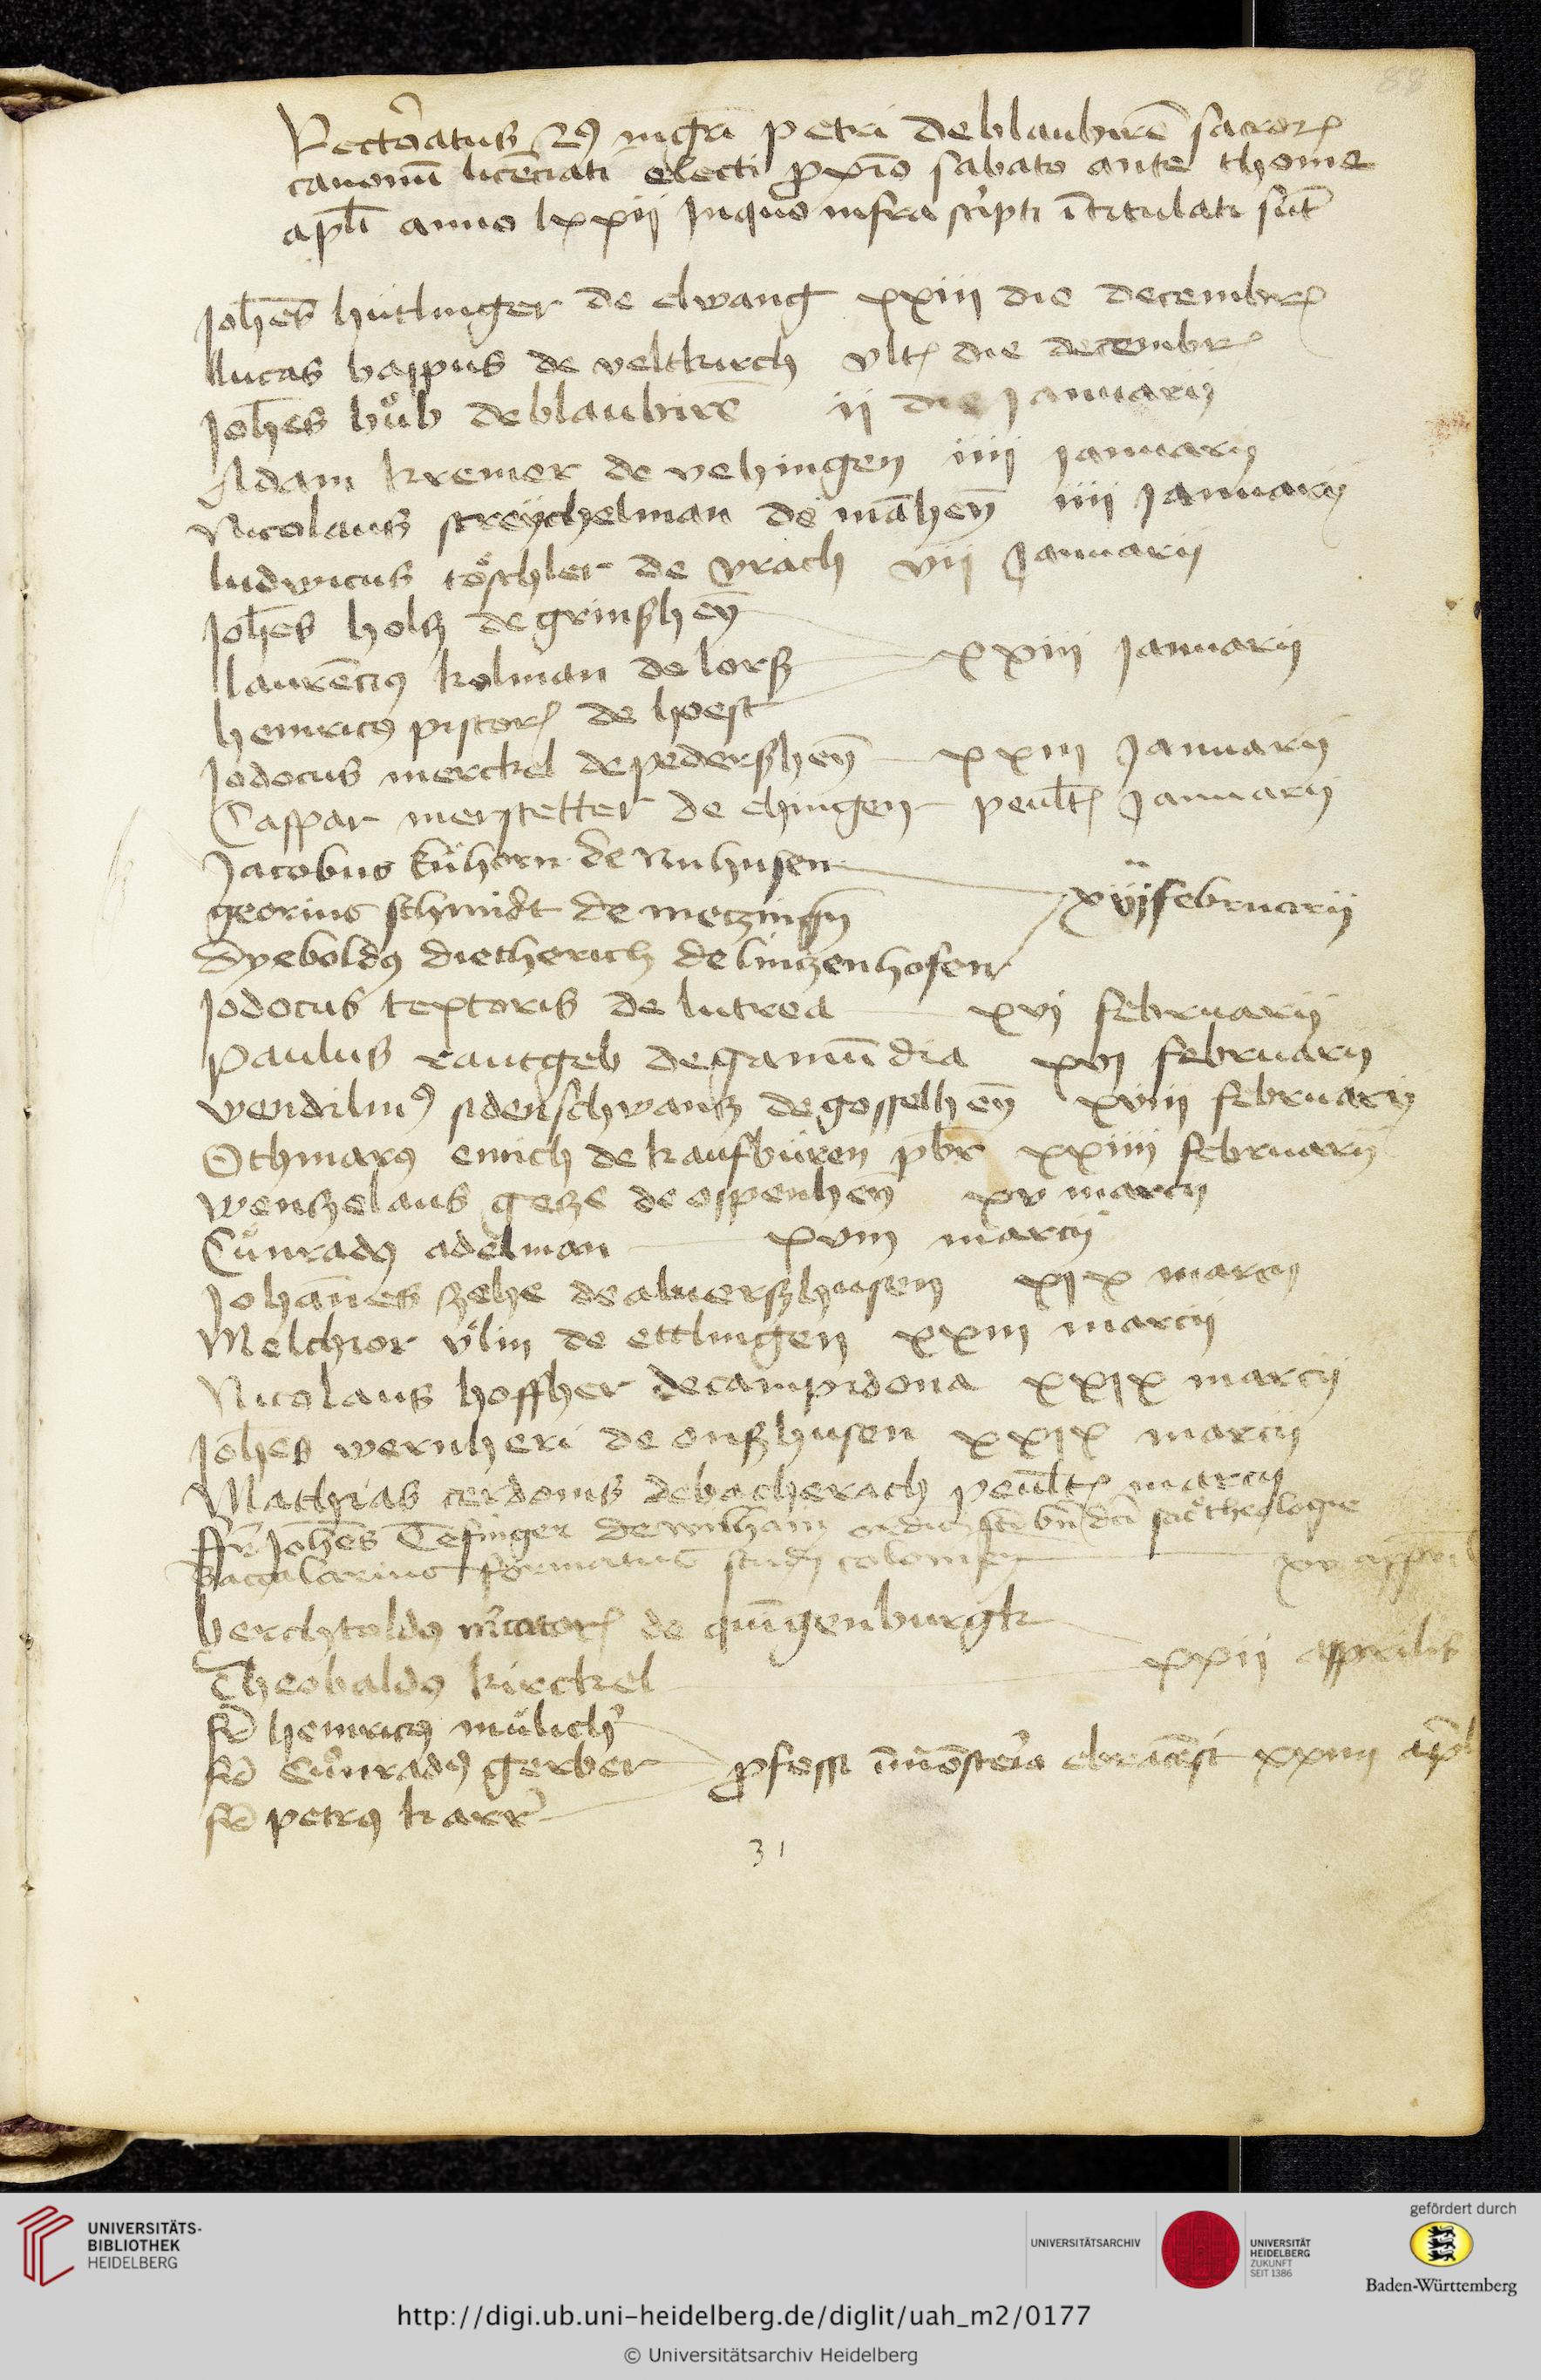 88
Rectoratus 29 mgri petri de blaubiren sacrorum
canonum licenciati electi proximo sabato ante thome
apli anno lxxii In quo infra scripti intitulati sunt
Johes hutlinger de elwang xxiii die decembr
llucas bappus de veltkirch vlt die decembr
Johes bůb de blaubire ii die Januarii
Adam kremer de vehingen iiii januarii
Nicolaus streychelman de manheym iiii Januarii
ludwicus töschler de Vrach vii Januarii
Johes holtz de grinsheym
llaurencius kolman de lorß
xxiii Januarii
henricus pistor de hoest
Jodocus merckel de pedersheym xxiii Januarii
Caspar merstetter de ehingen penult Januarii
Jacobus kühorn de Nuhusen
xiii februarii
georius schmidt de metzingen
Dyeboldus dietherich de lintzenhofen
Jodocus textoris de lutrea xvi februarii
Paulus rautgeb de gamundia xvi februarii
wendilinus sidenschwantz de gosselheym xviii februarii
Othmarus emich de kaufbüren pbr xxiiii februarii
wentzelaus getze de oppenheym xv marcii
Cůnradus adelman xviii marcii
Johannes zehe de aluerßhusen xix marcii
Melchior vlin de ettlingen xxiii marcii
Nicolaus hoffher de campidona xxix marcii
Johes wernheri de onßhusen xxix marcii
Mathias cerdonis de bacherach penult marcii
ffr Johes Tefinger de ordinis sti bndci theologie
Baccalarius formatus studii coloniensis xv appril
berchtoldus mcator de gungenburgk
xxii apprilis
Theobaldus kirckel
fr henricus mulich
fr Cůnradus gerber pfessi in monsterio ebracensi xxiiii apl
fr petrus karr
31
UNIVERSITÄTS-
BIBLIOTHEK
HEIDELBERG
UNIVERSITÄTSARCHIV
UNIVERSITÄT
HEIDELBERG
ZUKUNFT
SEIT 1386
gefördert durch
Baden-Württemberg
http://digi.ub.uni-heidelberg.de/diglit/uah_m2/0177
© Universitätsarchiv Heidelberg